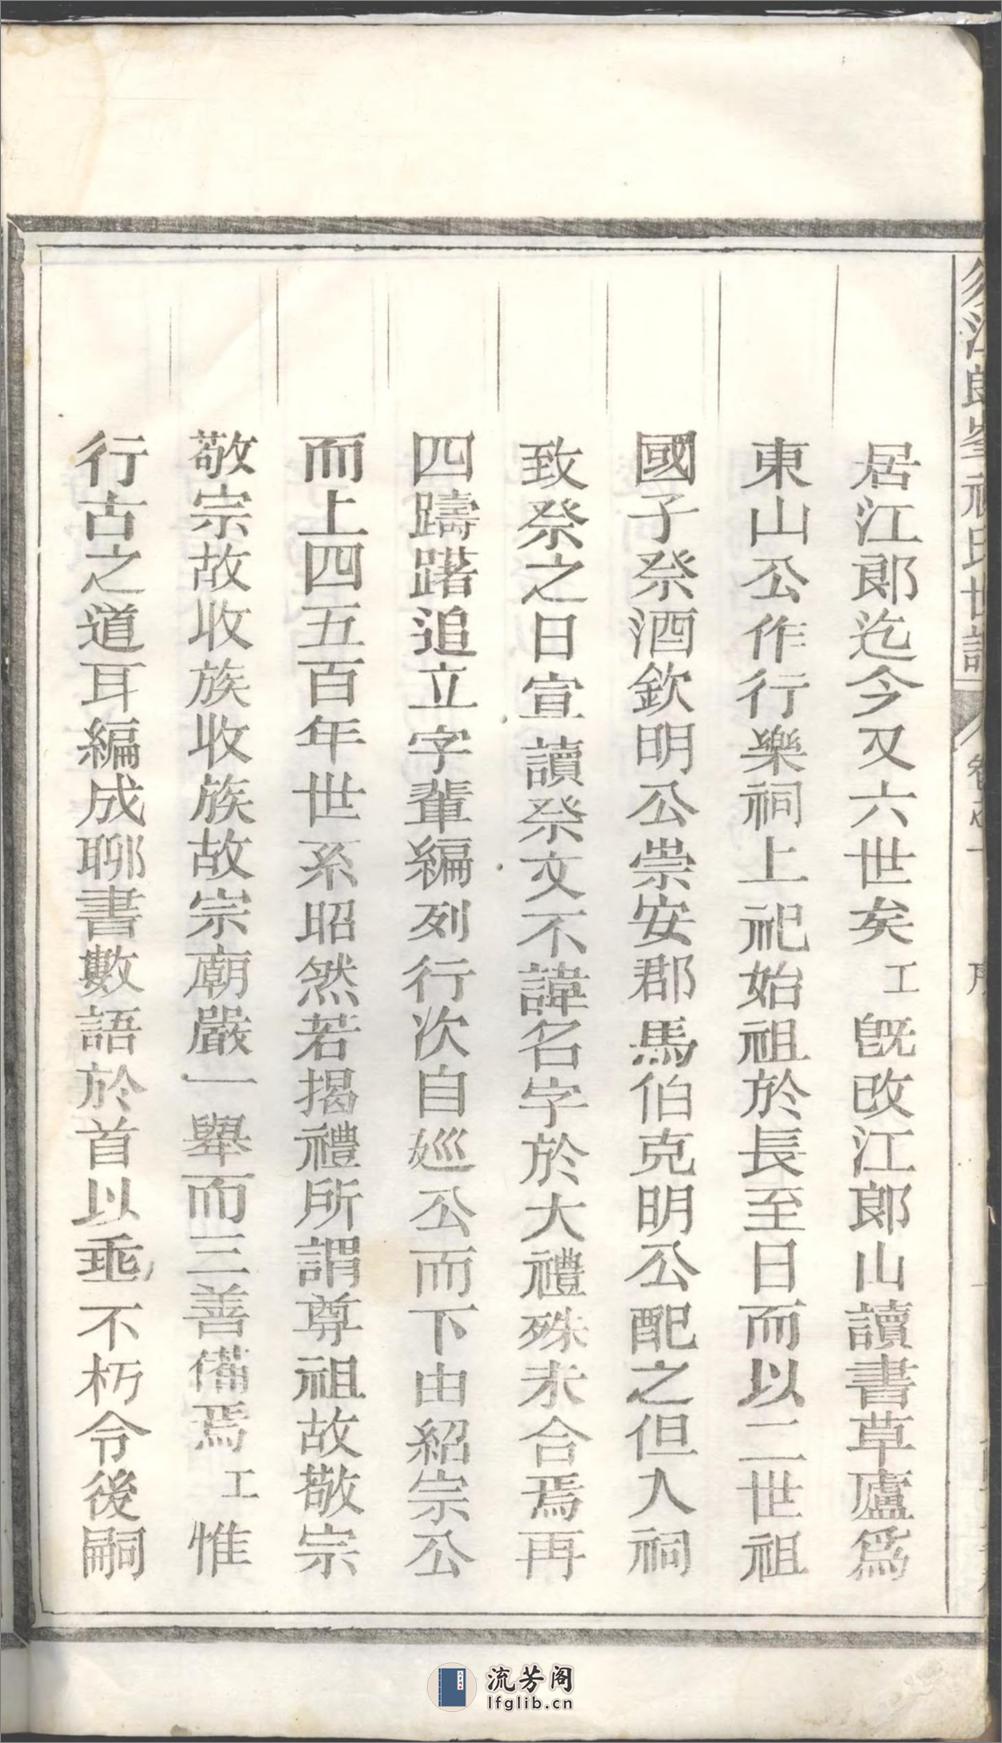 居江郎迄今又六世矣工旣改江郎山讀書草廬爲
東山公作行樂祠上祀始祖於長至日而以二世祖
國子祭酒欽明公崇安郡馬伯克明公配之但入祠
致祭之日宣讀祭文不諱名字於大禮殊未合焉再
四躊躇追立字輩編列行次自巡公而下由紹宗公
而上四五百年世系昭然若揭禮所謂尊祖故敬宗
敬宗故收族收族故宗廟嚴一舉而三善備焉工惟
行古之道耳編成聊書數語於首以垂不朽令後嗣
流芳阁
lfglib.cn